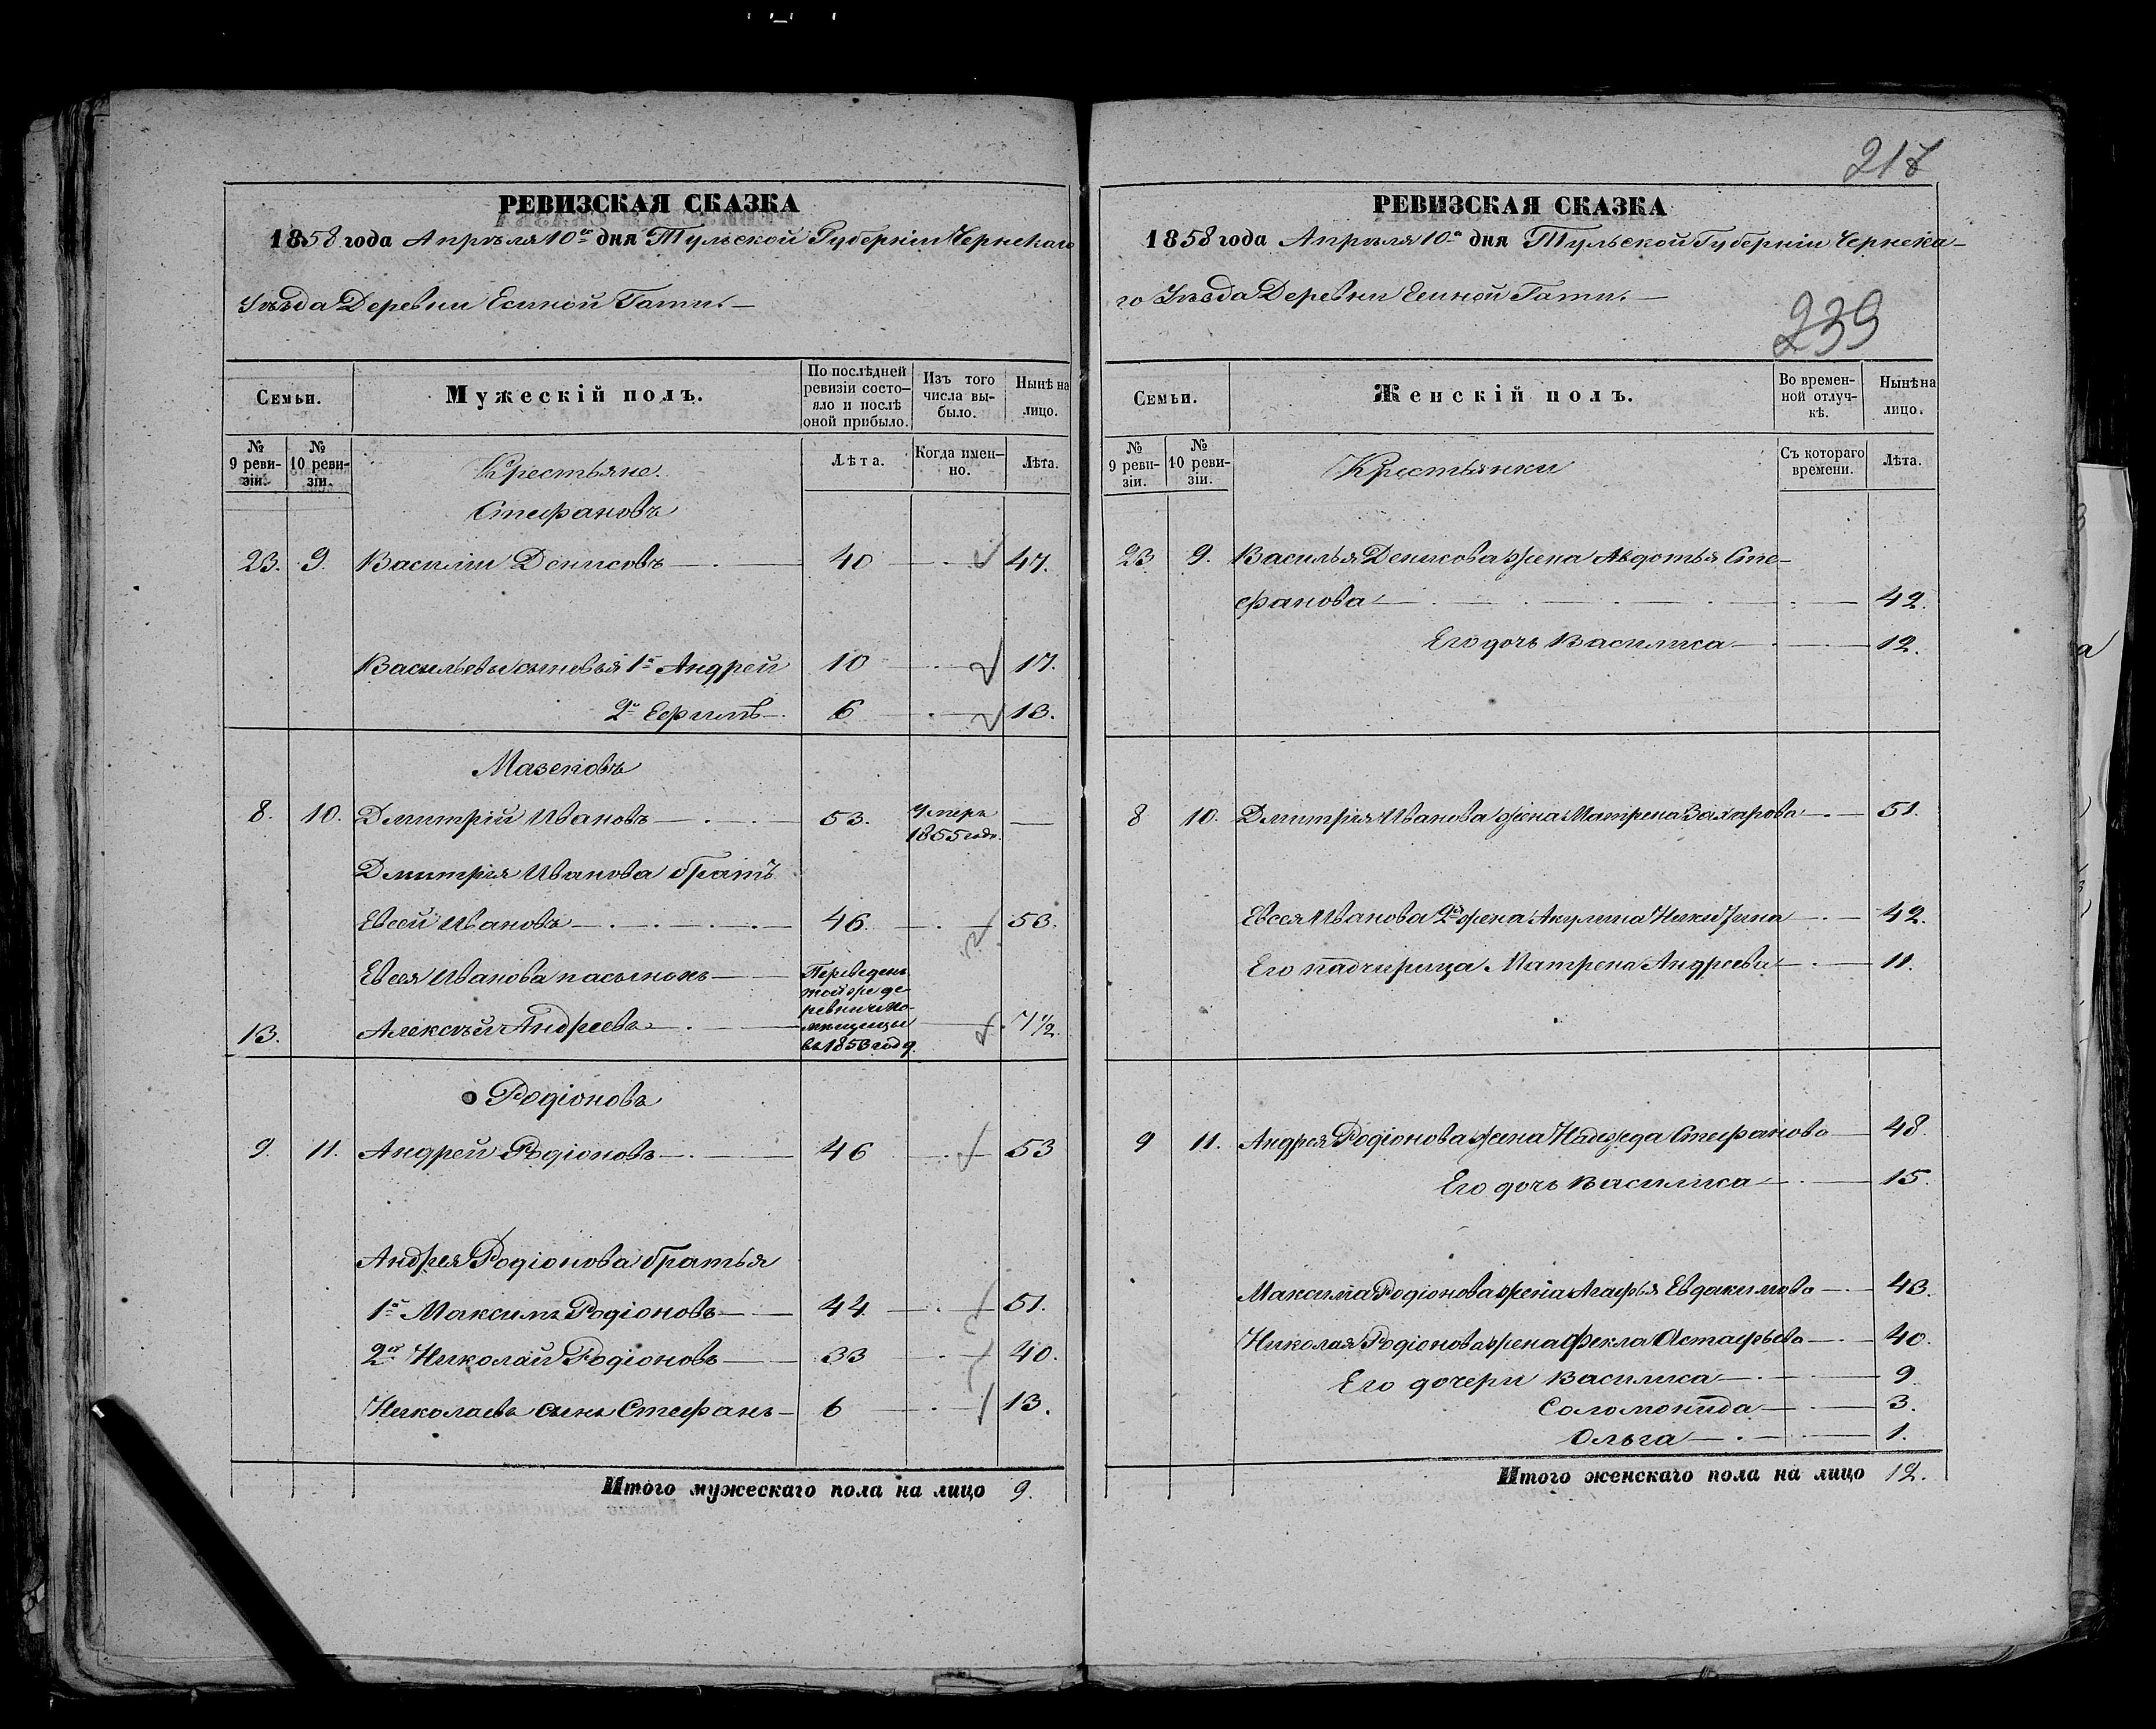 РЕВИЗСКАЯ СКАЗКА
1858 года Апрѣля 10го дня Тульской Губерніи Чернскаго
Уѣзда Деревни Есиной Гати.
Семьи.
Мужескій полъ.
По послѣдней ревизіи состояло и послѣ оной прибыло.
Изъ того числа выбыло.
Нынѣ на лицо.
№ 9 ревизіи.
№ 10 ревизіи.
Лѣта.
Когда именно.
Лѣта.
Крестьяне.
Стефановъ
23. 9. Василій Денисовъ 40 47.
Васильевы сыновья 1й Андрей 10 17.
2й Ефимъ 6 13.
Мазековъ
8. 10. Дмитрій Ивановъ 53. Умеръ 1855 года. —
Дмитрія Иванова братъ
Евсей Ивановъ 46. 53.
Евсея Иванова пасынокъ
13. Алексѣй Андреевъ Переведенъ той же деревни помѣщицы въ 1853 году. 7 1/2
Родіоновъ
9. 11. Андрей Родіоновъ 46 53
Андрея Родіонова братья
1й Максимъ Родіоновъ 44 51.
2й Николай Родіоновъ 33 40.
Николаевъ сынъ Стефанъ 6 13.
Итого мужескаго пола на лицо 9.
217
РЕВИЗСКАЯ СКАЗКА
1858 года Апрѣля 10го дня Тульской Губерніи Чернска-
го Уѣзда Деревни Есиной Гати.
239
Семьи.
Женскій полъ.
Во временной отлучкѣ.
Нынѣ на лицо.
№ 9 ревизіи.
№ 10 ревизіи.
Съ котораго времени.
Лѣта.
Крестьянки
23 9. Василья Денисова жена Авдотья Сте-
фанова 42.
Его дочь Василиса 12.
8 10. Дмитрія Иванова жена Матрена Захарова 51.
Евсея Иванова 2я жена Акулина Никитина 42.
Его падчерица Матрена Андреева 11.
9 11. Андрея Родіонова жена Надежда Стефанова 48.
Его дочь Василиса 15.
Максима Родіонова жена Агафья Евдакимова 43.
Николая Родіонова жена Фекла Астафьева 40.
Его дочери Василиса 9
Соломонида 3.
Ольга 1.
Итого женскаго пола на лицо 12.